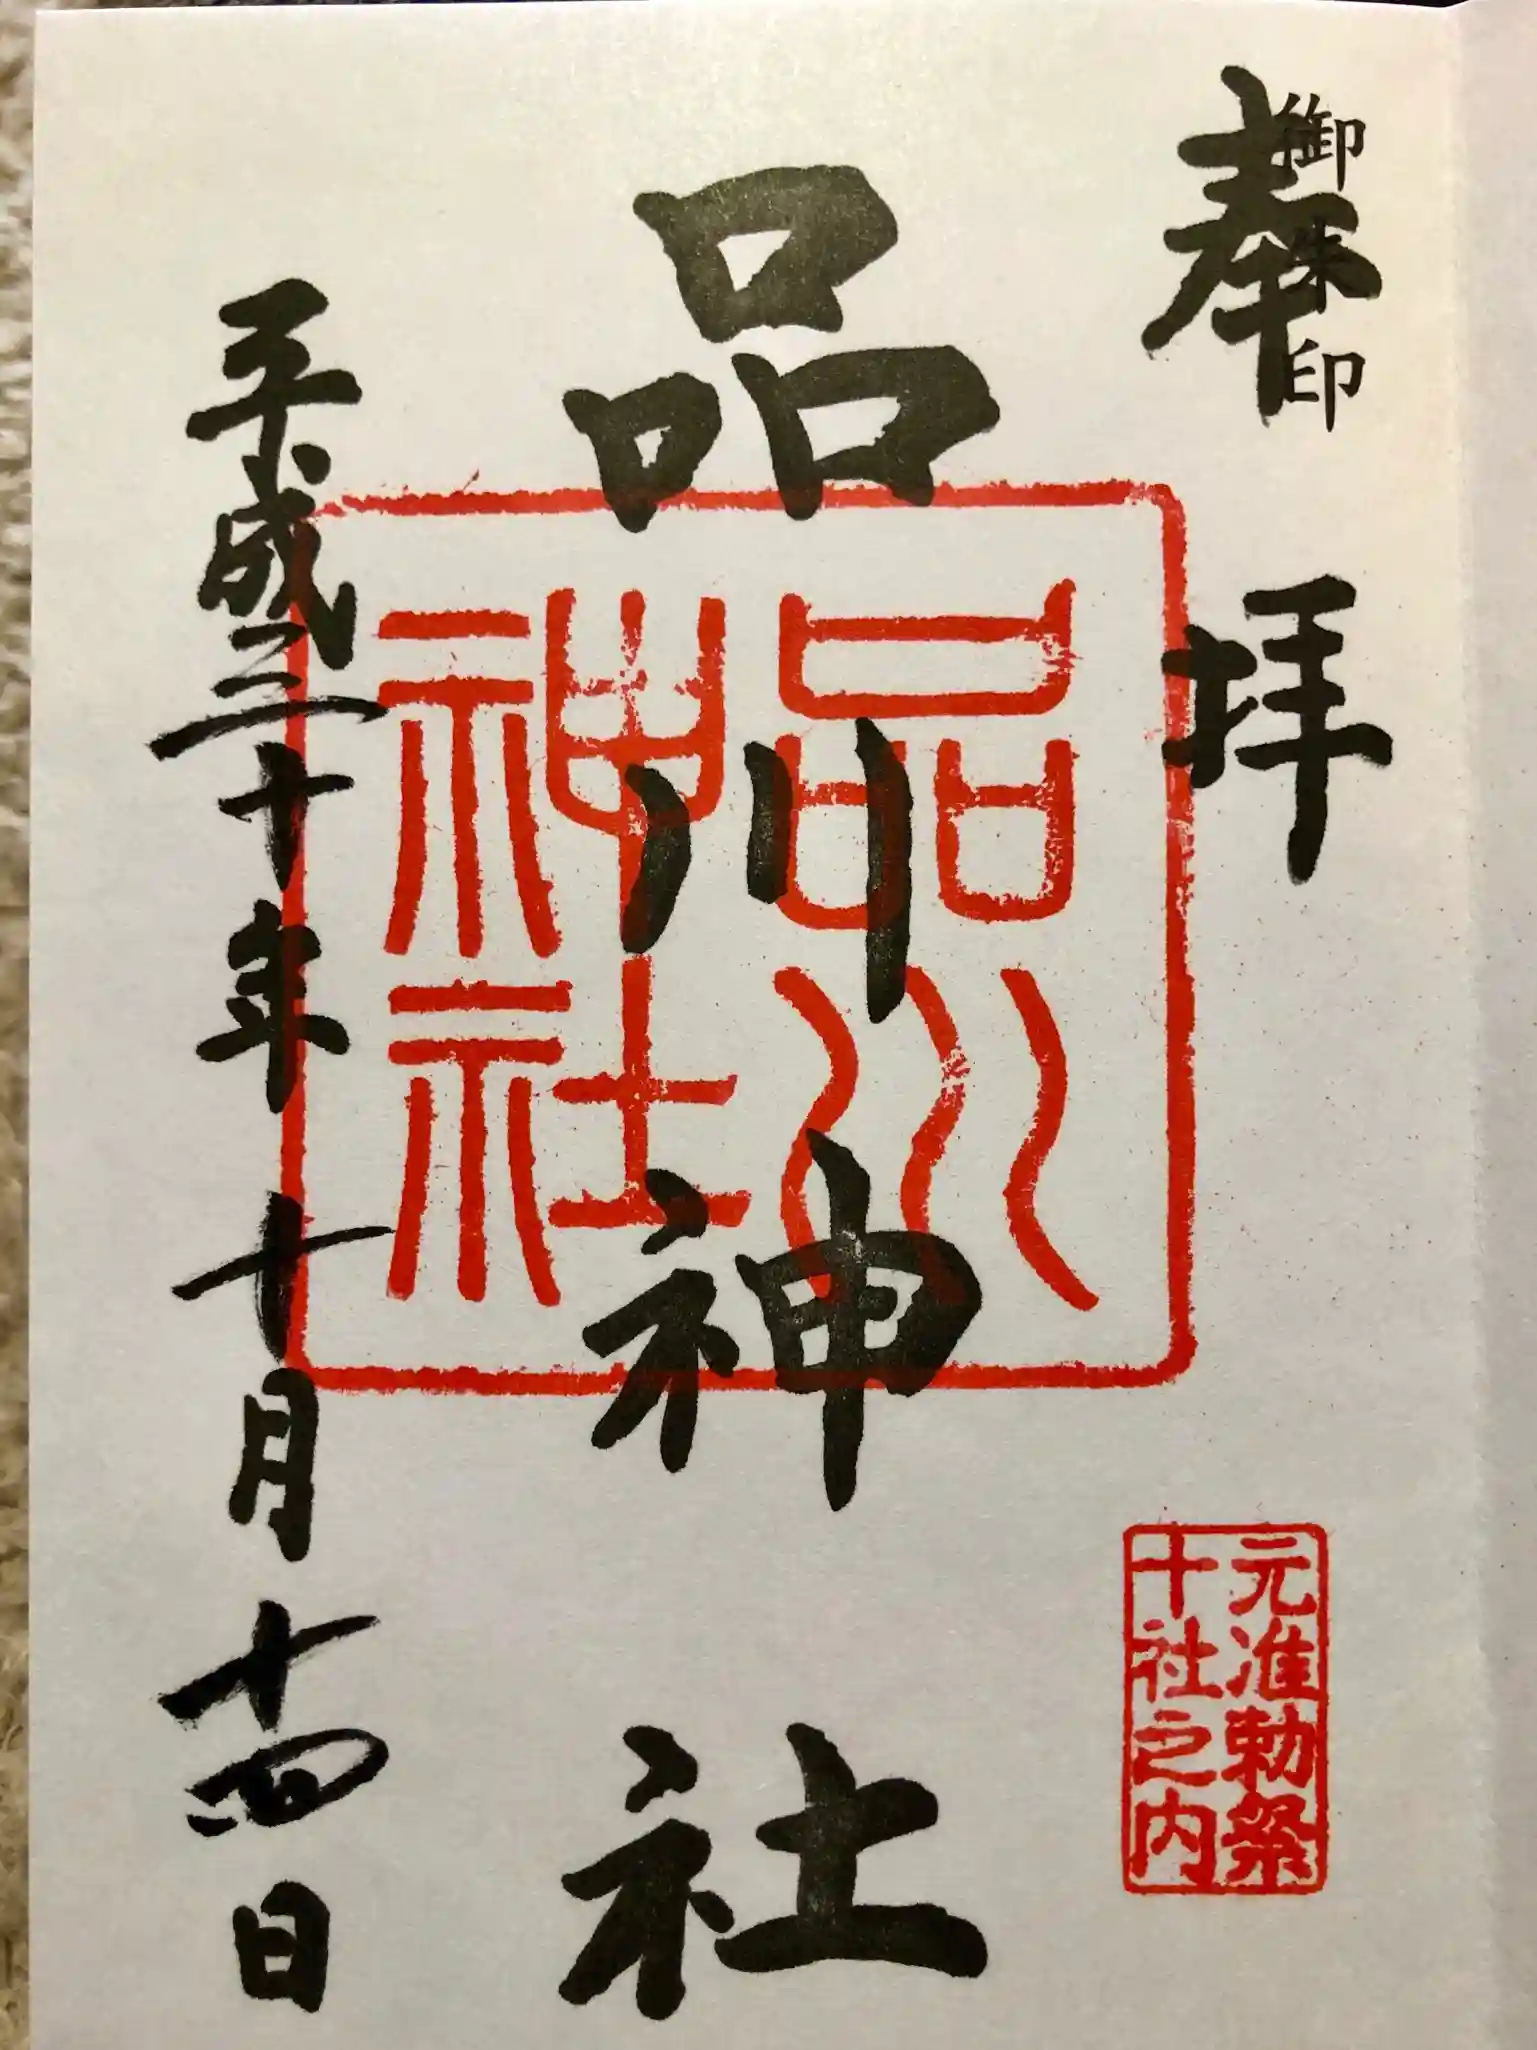 御朱印
奉拝
品川神社
品川
神社
平成三十年十月十四日
元准勅祭
十社之内